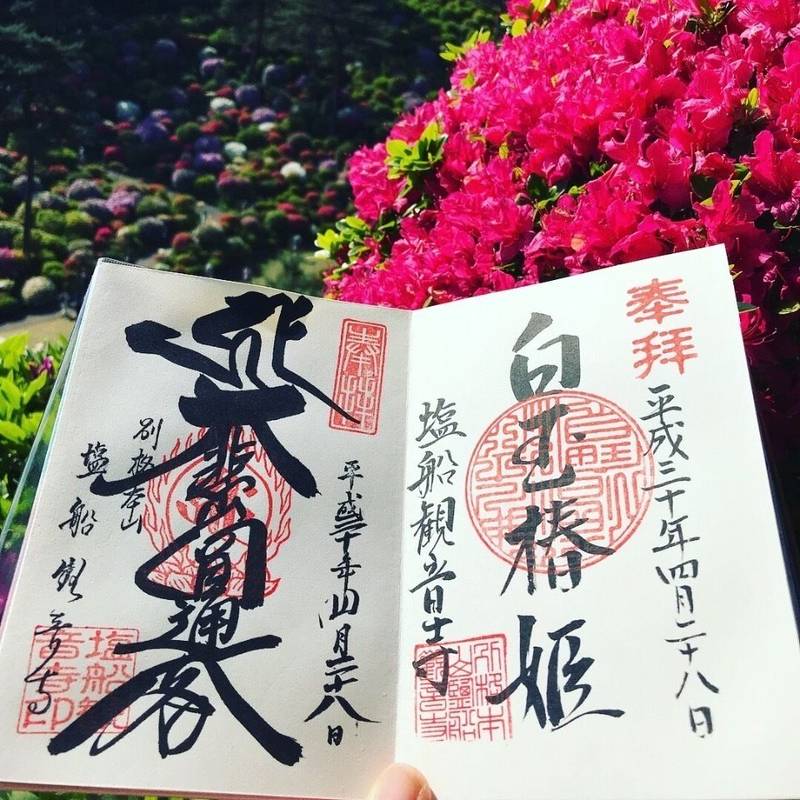 奉拝
平成三十年四月二十八日
白玉椿姫
塩船観音寺
奉拝
平成三十年四月二十八日
大悲圓通閣
別格本山
塩船観音寺
塩船観音寺印